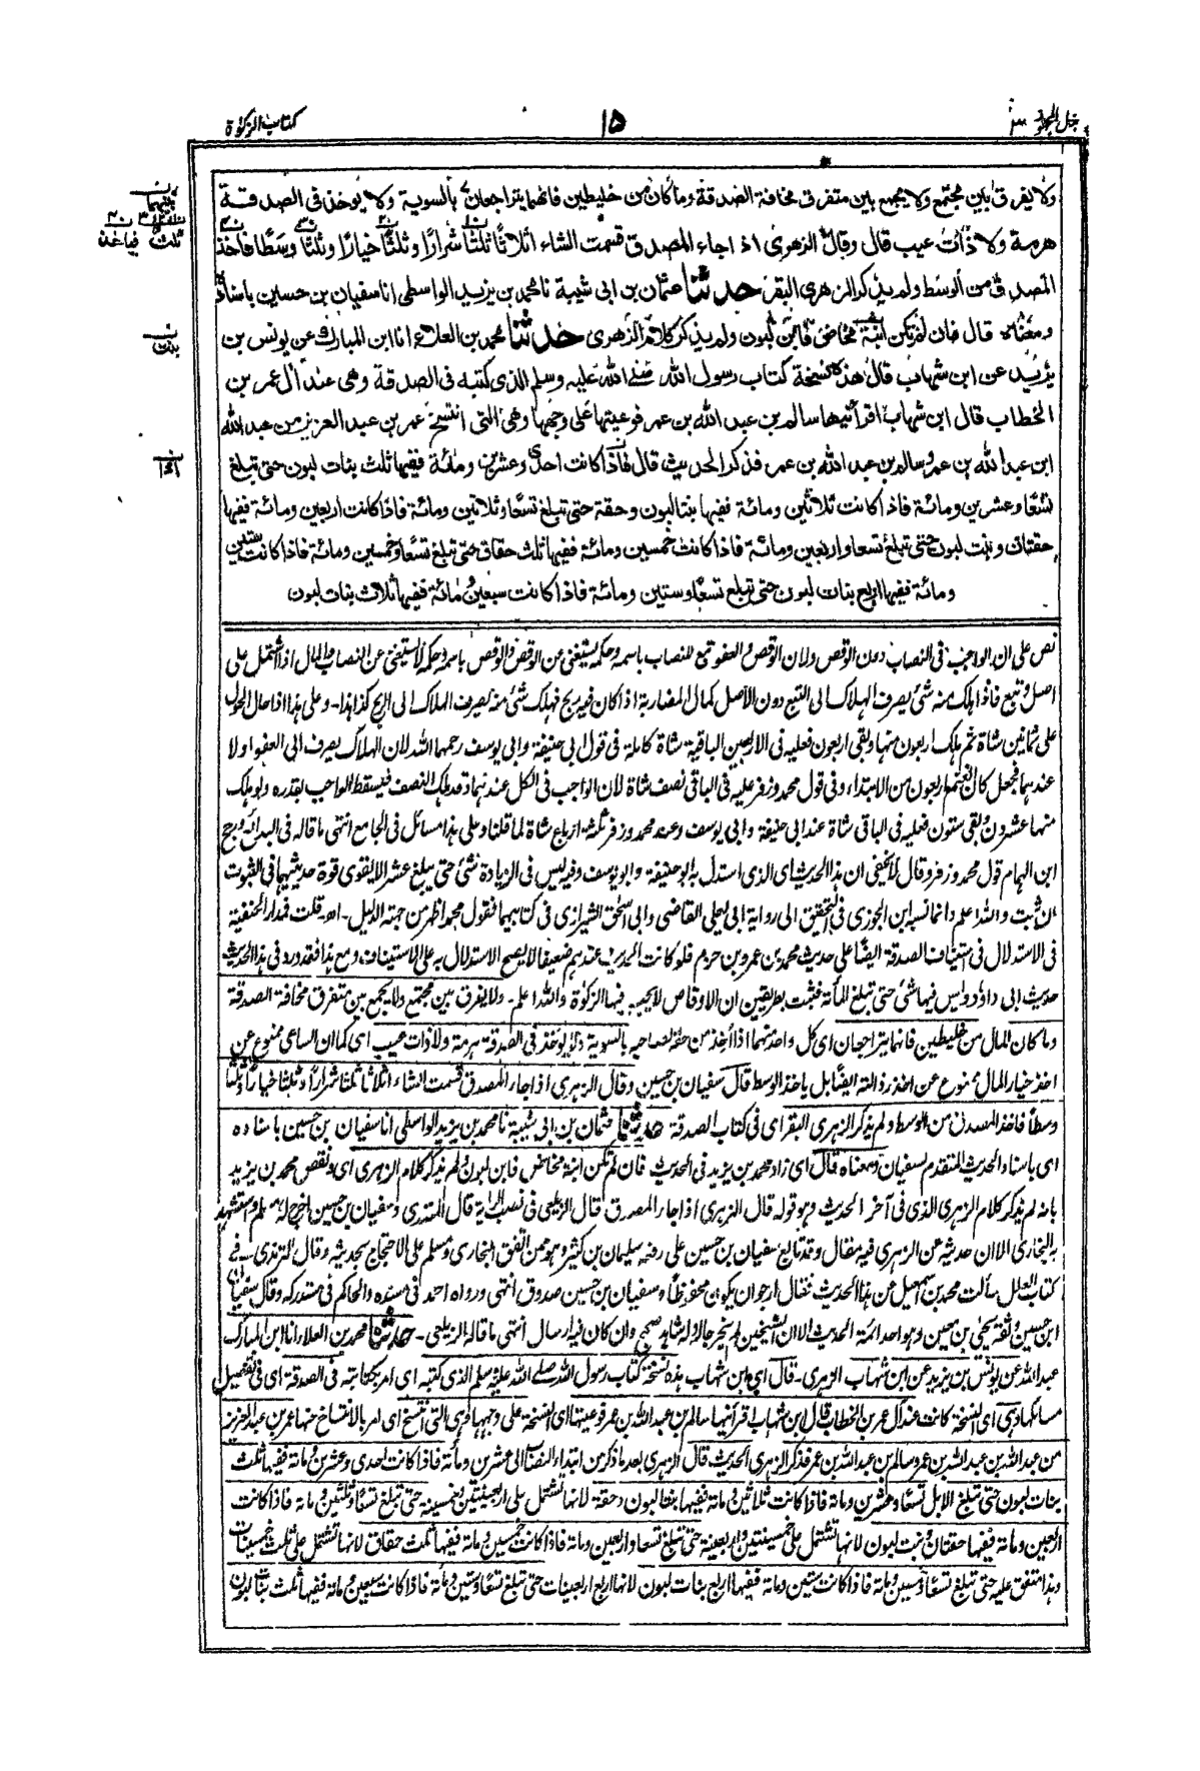 كتاب الزكوٰة
١٥
بذل المجهود
ولا يفرق بين مجتمع ولا يجمع بين متفرق مخافة الصدقة وما كان من خليطين فانهما يتراجعان بالسوية ولا يوخذ فى الصدقة
هرمة ولا ذات عيب قال وقال الزهرى اذا جاء المصدق قسمت الشاء اثلاثًا ثلثًا شرارًا وثلثًا خيارًا وثلثًا وسطًا فاخذ
المصدق من الوسط ولم يذكر الزهرى البقر حدثنا عثمان بن ابى شيبة نا محمد بن يزيد الواسطى انا سفيان بن حسين باسناده
ومعناه قال فان لم تكن ابنة مخاض فابن لبون ولم يذكر كلام الزهرى حدثنا محمد بن العلاء انا ابن المبارك عن يونس بن
يزيد عن ابن شهاب قال هذه نسخة كتاب رسول الله صلى الله عليه وسلم الذى كتبه فى الصدقة وهى عند آل عمر بن
الخطاب قال ابن شهاب اقرأنيها سالم بن عبد الله بن عمر فوعيتها على وجهها وهى التى انتسخ عمر بن عبد العزيز من عبد الله
ابن عبد الله بن عمر وسالم بن عبد الله بن عمر فذكر الحديث قال فاذا كانت احدى وعشرين ومائة ففيها ثلث بنات لبون حتى تبلغ
تسعًا وعشرين ومائة فاذا كانت ثلاثين ومائة ففيها بنتا لبون وحقة حتى تبلغ تسعًا وثلاثين ومائة فاذا كانت اربعين ومائة ففيها
حقتان وبنت لبون حتى تبلغ تسعا واربعين ومائة فاذا كانت خمسين ومائة ففيها ثلث حقاق حتى تبلغ تسعًا وخمسين ومائة فاذا كانت ستين
ومائة ففيها اربع بنات لبون حتى تبلغ تسعًا وستين ومائة فاذا كانت سبعين ومائة ففيها ثلاث بنات لبون
نص على ان الواجب فى النصاب دون الوقص ولان الوقص والعفو تبع للنصاب باسمه وحكمه يستغنى عن الوقص والوقص باسمه وحكمه لا يستغنى عن النصاب والمال اذا اشتمل على
اصل وتبع فاذا هلك منه شئ يصرف الهلاك الى التبع دون الاصل كمال المضاربة اذا كان فيه ربح فهلك شئ منه يصرف الهلاك الى الربح كذا هذا۔ وعلى هذا اذا حال الحول
على ثمانين شاة ثم هلك اربعون منها وبقى اربعون فعليه فى الاربعين الباقية شاة كاملة فى قول ابى حنيفة وابى يوسف رحمهما الله لان الهلاك يصرف الى العفو اولا
عندهما فجعل كان الغنم اربعون من الابتداء، وفى قول محمد وزفر عليه فى الباقى نصف شاة لان الواجب فى الكل عندهما وقد هلك النصف فيسقط الواجب بقدره ولو هلك
منها عشرون وبقى ستون فعليه فى الباقى شاة عند ابى حنيفة وابى يوسف وعند محمد وزفر ثلثة ارباع شاة لما قلنا وعلى هذا مسائل فى الجامع انتهى ما قاله فى البدائع ورجح
ابن الهمام قول محمد وزفر وقال لا يخفى ان هذا الحديث اى الذى استدل به ابو حنيفة وابو يوسف وفيه ليس فى الزيادة شئ حتى يبلغ عشرا لا يقوى قوة حديثهما فى الثبوت
ان ثبت والله اعلم وانما نسبه ابن الجوزى فى التحقيق الى رواية ابى يعلى القاضى وابى اسحق الشيرازى فى كتابيهما فقول محمد اظهر من جهة الدليل۔ اهـ قلت فمدار الحنفية
فى الاستدلال فى استيناف الصدقة ايضًا على حديث محمد بن عمرو بن حزم فلو كانت الحديث عندهم ضعيفا لا يصح الاستدلال به على الاستيناف ومع هذا فقد ورد فى هذا الحديث
حديث ابى داؤد وليس فيها شئ حتى تبلغ المائة فثبت بطريقين ان الاوقاص لا يجب فيها الزكوة والله اعلم۔ ولا يفرق بين مجتمع ولا يجمع بين متفرق مخافة الصدقة
وما كان المال من خليطين فانهما يتراجعان اى كل واحد منهما اذا اخذ من حقه لصاحبه بالسوية ولا يوخذ فى الصدقة هرمة ولا ذات عيب اى كما ان الساعى ممنوع عن
اخذ خيار المال ممنوع عن اخذ رذالته ايضًا بل ياخذ الوسط قال سفيان بن حسين وقال الزهرى اذا جاء المصدق قسمت الشاء اثلاثا ثلثا شرارًا وثلثا خيارًا وثلثا
وسطًا فاخذ المصدق من الوسط ولم يذكر الزهرى البقر اى فى كتاب الصدقة حدثنا عثمان بن ابى شيبة نا محمد بن يزيد الواسطى انا سفيان بن حسين باسناده
اى باسناد الحديث المتقدم لسفيان ومعناه قال اى زاد محمد بن يزيد فى الحديث فان لم تكن ابنة مخاض فابن لبون ولم يذكر كلام الزهرى اى ونقص محمد بن يزيد
بانه لم يذكر كلام الزهرى الذى فى آخر الحديث وهو قوله قال الزهرى اذا جاء المصدق قال الزيلعى فى نصب الراية قال المنذرى وسفيان بن حسين اخرج له مسلم واستشهد
به البخارى الا ان حديثه عن الزهرى فيه مقال وقد تابع سفيان بن حسين على رفعه سليمان بن كثير وهو ممن اتفق البخارى ومسلم على الاحتجاج بحديثه وقال الترمذى۔ فى
كتاب العلل سألت محمد بن اسمعيل عن هذا الحديث فقال ارجو ان يكون محفوظا وسفيان بن حسين صدوق انتهى ورواه احمد فى مسنده والحاكم فى مستدركه وقال سفيان
ابن حسين وثقه يحيى بن معين وهو احد ائمة الحديث الا ان الشيخين لم يخرجا له وله شاهد صحيح وان كان فيه ارسال انتهى ما قاله الزيلعى۔ حدثنا محمد بن العلاء انا ابن المبارك
عبد الله عن يونس بن يزيد عن ابن شهاب الزهرى۔ قال اى ابن شهاب هذه نسخة كتاب رسول الله صلى الله عليه وسلم الذى كتبه اى امر بكتابته فى الصدقة اى فى تفصيل
مسائلها وهى اى النسخة كانت عند آل عمر بن الخطاب قال ابن شهاب اقرأنيها سالم بن عبد الله بن عمر فوعيتها اى النسخة على وجهها وهى التى انتسخ اى امر بالانتساخ منها عمر بن عبد العزيز
من عبد الله بن عبد الله بن عمر وسالم بن عبد الله بن عمر فذكر الزهرى الحديث قال الزهرى بعد ما ذكر من ابتداء النصاب الى عشرين ومائة فاذا كانت احدى وعشرين ومائة ففيها ثلث
بنات لبون حتى تبلغ الابل تسعًا وعشرين ومائة فاذا كانت ثلاثين ومائة ففيها بنتا لبون وحقة لانها تشتمل على اربعينتين وخمسينة حتى تبلغ تسعًا وثلثين ومائة فاذا كانت
اربعين ومائة ففيها حقتان وبنت لبون لانها تشتمل على خمسينتين واربعينة حتى تبلغ تسعا واربعين ومائة فاذا كانت خمسين ومائة ففيها ثلث حقاق لانها تشتمل على ثلث خمسينات
وهذا متفق عليه حتى تبلغ تسعًا وخمسين ومائة فاذا كانت ستين ومائة ففيها اربع بنات لبون لانها اربع اربعينات حتى تبلغ تسعًا وستين ومائة فاذا كانت سبعين ومائة ففيها ثلث بنات لبون